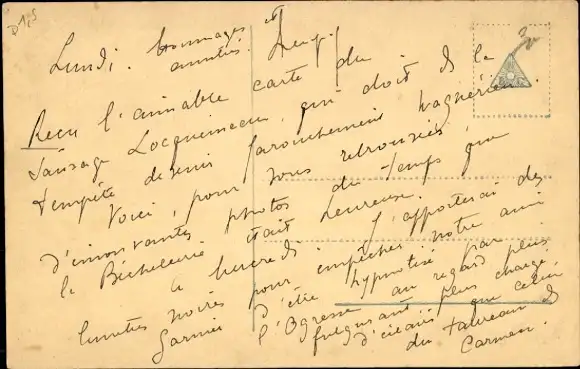 Lundi. Hommages
amitiés.
Reçu l'aimable carte du
sauvage Locquémeau, qui doit de la
tempête devenir farouchement wagnérien.
Voici, pour vous retrouvés,
d'émouvantes photos du temps que
la Béchellerie était heureuse.
à mercredi J'apporterai des
lunettes noires pour empêcher notre ami
Garnier d'être hypnotisé par
l'Ogresse au regard plus
fulgurant, plus chargé
d'éclairs que celui
du taureau de
Carmen.